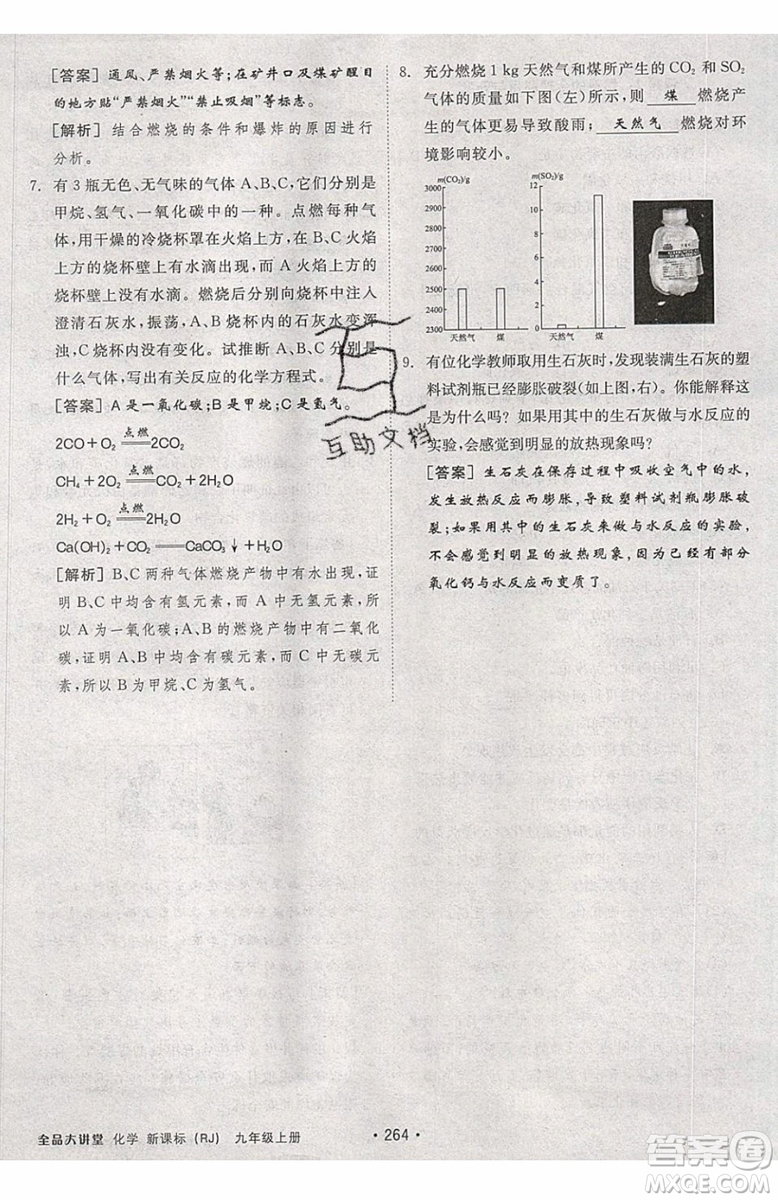 [答案] 通风、严禁烟火等;在矿井口及煤矿醒目
的地方贴“严禁烟火”“禁止吸烟”等标志。
[解析] 结合燃烧的条件和爆炸的原因进行
分析。
7. 有 3 瓶无色、无气味的气体 A、B、C,它们分别是
甲烷、氢气、一氧化碳中的一种。点燃每种气
体,用干燥的冷烧杯罩在火焰上方,B、C 火焰
上方的烧杯壁上有水滴。A 火焰上方的
烧杯壁上没有水滴。燃烧后分别向烧杯中注入
澄清石灰水,振荡,A、B 烧杯内的石灰水变浑
浊,C 烧杯内没有变化。试推断 A、B、C 分别是
什么气体,写出有关反应的化学方程式。
[答案] A 是一氧化碳;B 是甲烷;C 是氢气。
2CO+O₂ 点燃 2CO₂
CH₄+2O₂ 点燃 CO₂+2H₂O
2H₂+O₂ 点燃 2H₂O
Ca(OH)₂+CO₂══CaCO₃↓+H₂O
[解析] B、C 两种气体燃烧产物中有水出现,证
明 B、C 中均含有氢元素,而 A 中无氢元素,所
以 A 为一氧化碳;A、B 的燃烧产物中有二氧化
碳,证明 A、B 中均含有碳元素,而 C 中无碳元
素,所以 B 为甲烷,C 为氢气。
8. 充分燃烧 1 kg 天然气和煤所产生的 CO₂ 和 SO₂
气体的质量如下图(左)所示,则 煤 燃烧产
生的气体更易导致酸雨; 天然气 燃烧对环
境影响较小。
m(CO₂)/g
3000
2900
2800
2700
2600
2500
2400
2300
天然气 煤
m(SO₂)/g
12
10
8
6
4
2
0
天然气 煤
9. 有位化学教师取用生石灰时,发现装满生石灰的塑
料试剂瓶已经膨胀破裂(如上图,右)。你能解释这
是为什么吗?如果用其中的生石灰做与水反应的
实验,会感觉到明显的放热现象吗?
[答案] 生石灰在保存过程中吸收空气中的水,
发生放热反应而膨胀,导致塑料试剂瓶膨胀破
裂;用瓶内的生石灰来做与水反应的实验,
不会感觉到明显的放热现象,因为大部分
氧化钙与水反应生成了氢氧化钙。
互助文档
全品大讲堂 化学 新课标(RJ) 九年级上册
· 264 ·
作业精灵